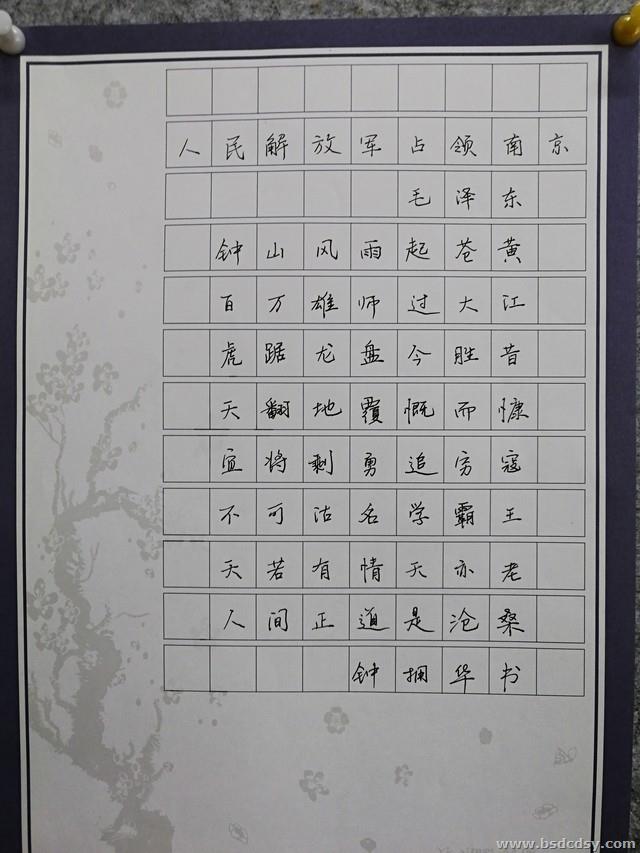 人民解放军占领南京
毛泽东
钟山风雨起苍黄
百万雄师过大江
虎踞龙盘今胜昔
天翻地覆慨而慷
宜将剩勇追穷寇
不可沽名学霸王
天若有情天亦老
人间正道是沧桑
钟拥华书
www.bsdcdsy.com